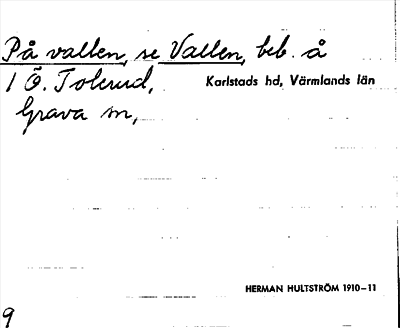 På vallen, se Vallen, beb. å
1 Ö. Tolerud, Karlstads hd, Värmlands län
Grava sn,
HERMAN HULTSTRÖM 1910–11
9